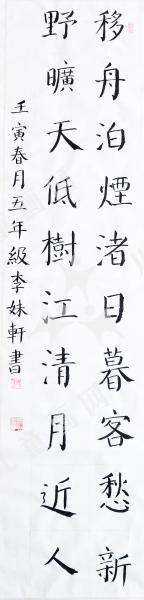 移舟泊煙渚日暮客愁新
野曠天低樹江清月近人
壬寅春月五年級李妹軒書